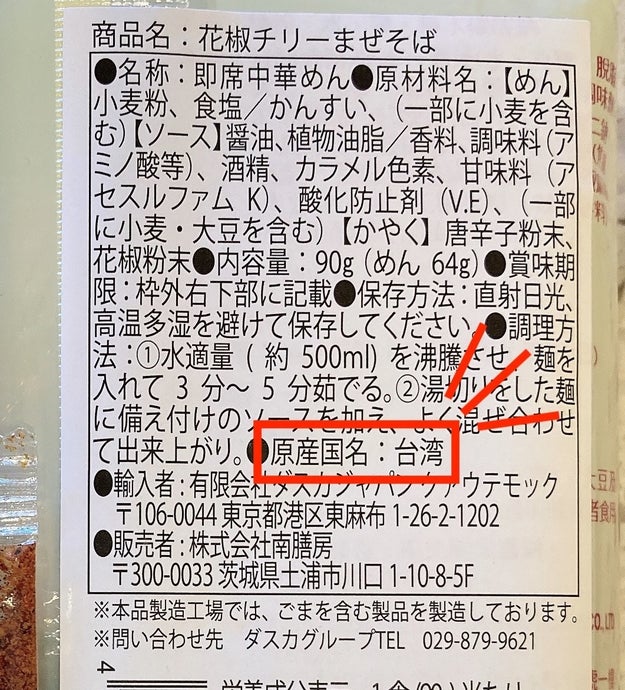 商品名：花椒チリーまぜそば
●名称：即席中華めん●原材料名：【めん】
小麦粉、食塩／かんすい、（一部に小麦を含
む）【ソース】醤油、植物油脂／香料、調味料（ア
ミノ酸等）、酒精、カラメル色素、甘味料（ア
セスルファム K）、酸化防止剤（V.E）、（一部
に小麦・大豆を含む）【かやく】唐辛子粉末、
花椒粉末●内容量：90g（めん 64g）●賞味期
限：枠外右下部に記載●保存方法：直射日光、
高温多湿を避けて保存してください。●調理方
法：①水適量（約 500ml）を沸騰させ、麺を
入れて 3 分～ 5 分茹でる。②湯切りをした麺
に備え付けのソースを加え、よく混ぜ合わせ
て出来上がり。●原産国名：台湾
●輸入者：有限会社ダスカジャパンクアウテモック
〒106-0044 東京都港区東麻布 1-26-2-1202
●販売者：株式会社南膳房
〒300-0033 茨城県土浦市川口 1-10-8-5F
※本品製造工場では、ごまを含む製品を製造しております。
※問い合わせ先 ダスカグループTEL 029-879-9621